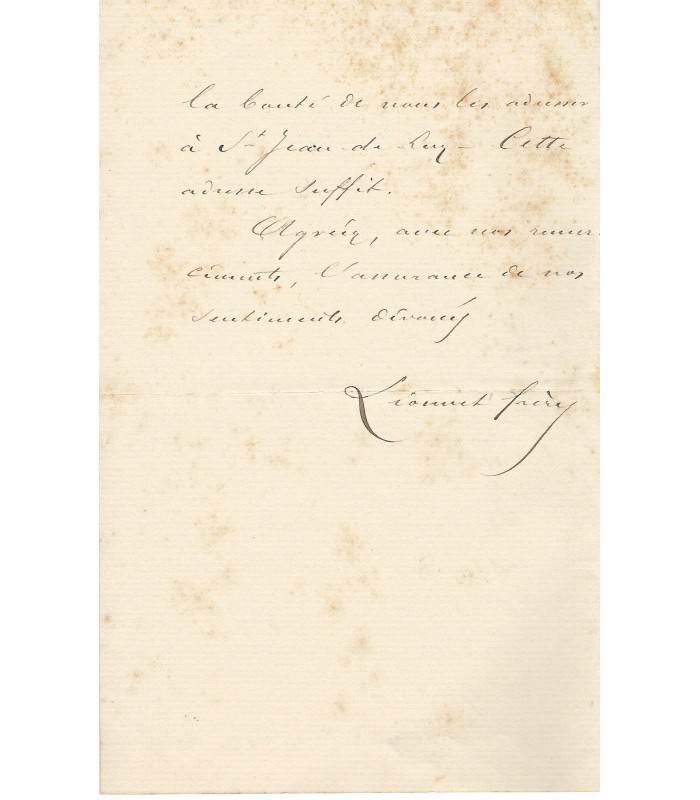 la bonté de nous les adresser
à St Jean-de-Luz - Cette
adresse suffit.
Agréez, avec nos remer-
ciements, l'assurance de nos
sentiments dévoués
Lionnet frères